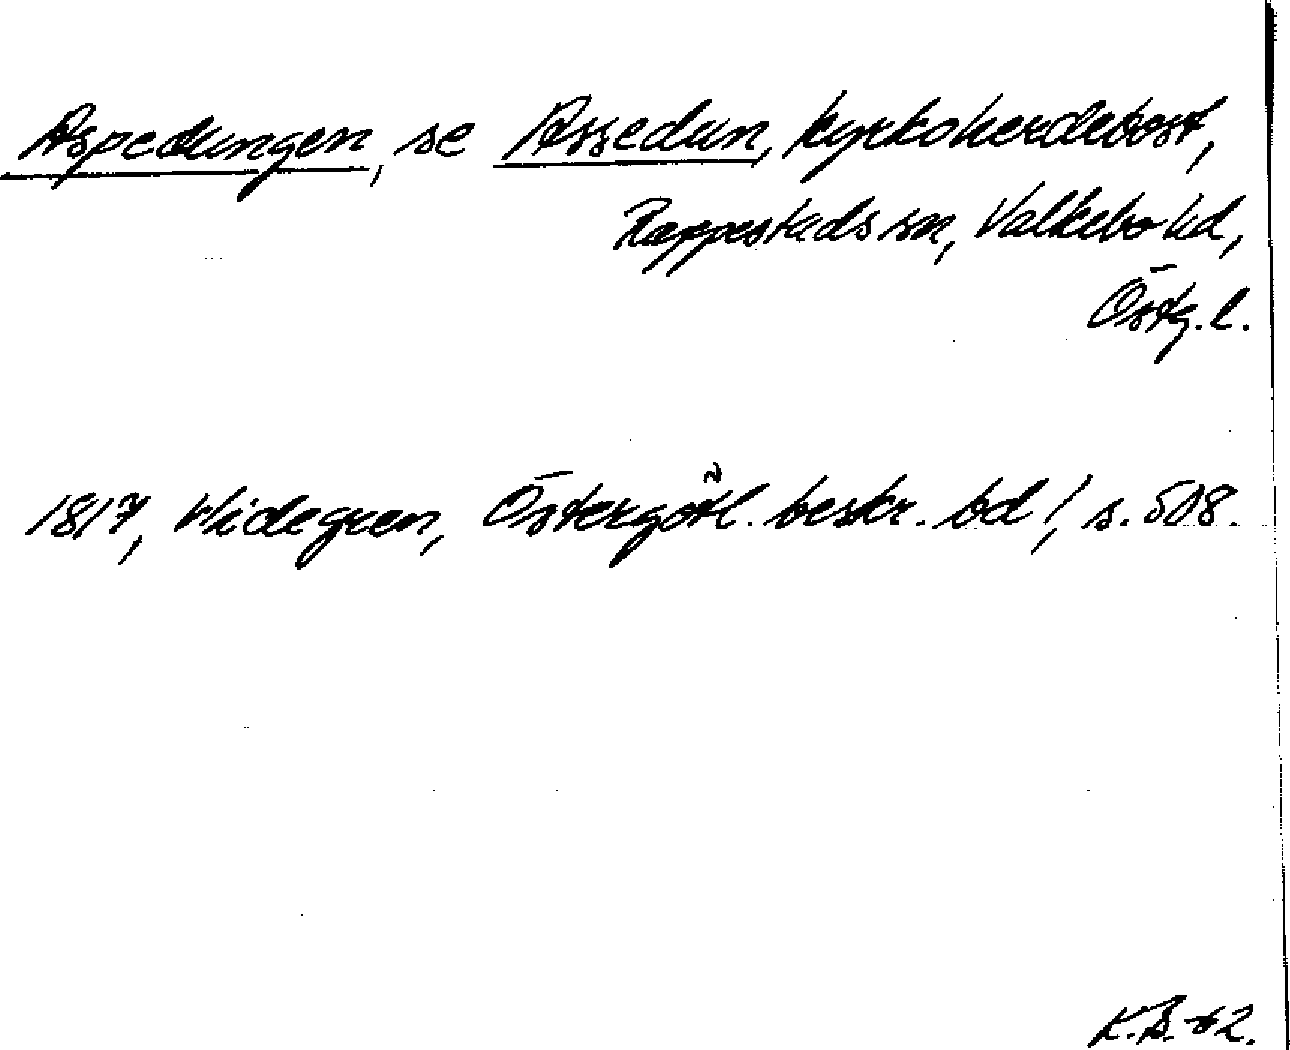 Aspedungen, se Assedun, kyrkoherdebost,
Rappestads sn, Valkebo hd,
Östg. l.
1817, Widegren, Östergötl. beskr. bd 1, s. 508.
K.B. 62.